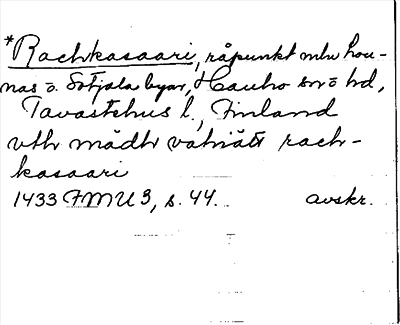 *Rachkasaari, råpunkt mln hou-
nas o. Sotjala byar, Hauho sn o hd,
Tavastehus l., Finland
vth mädh vatnätt rach-
kasaari
1433 FMU 3, s. 44. avskr.